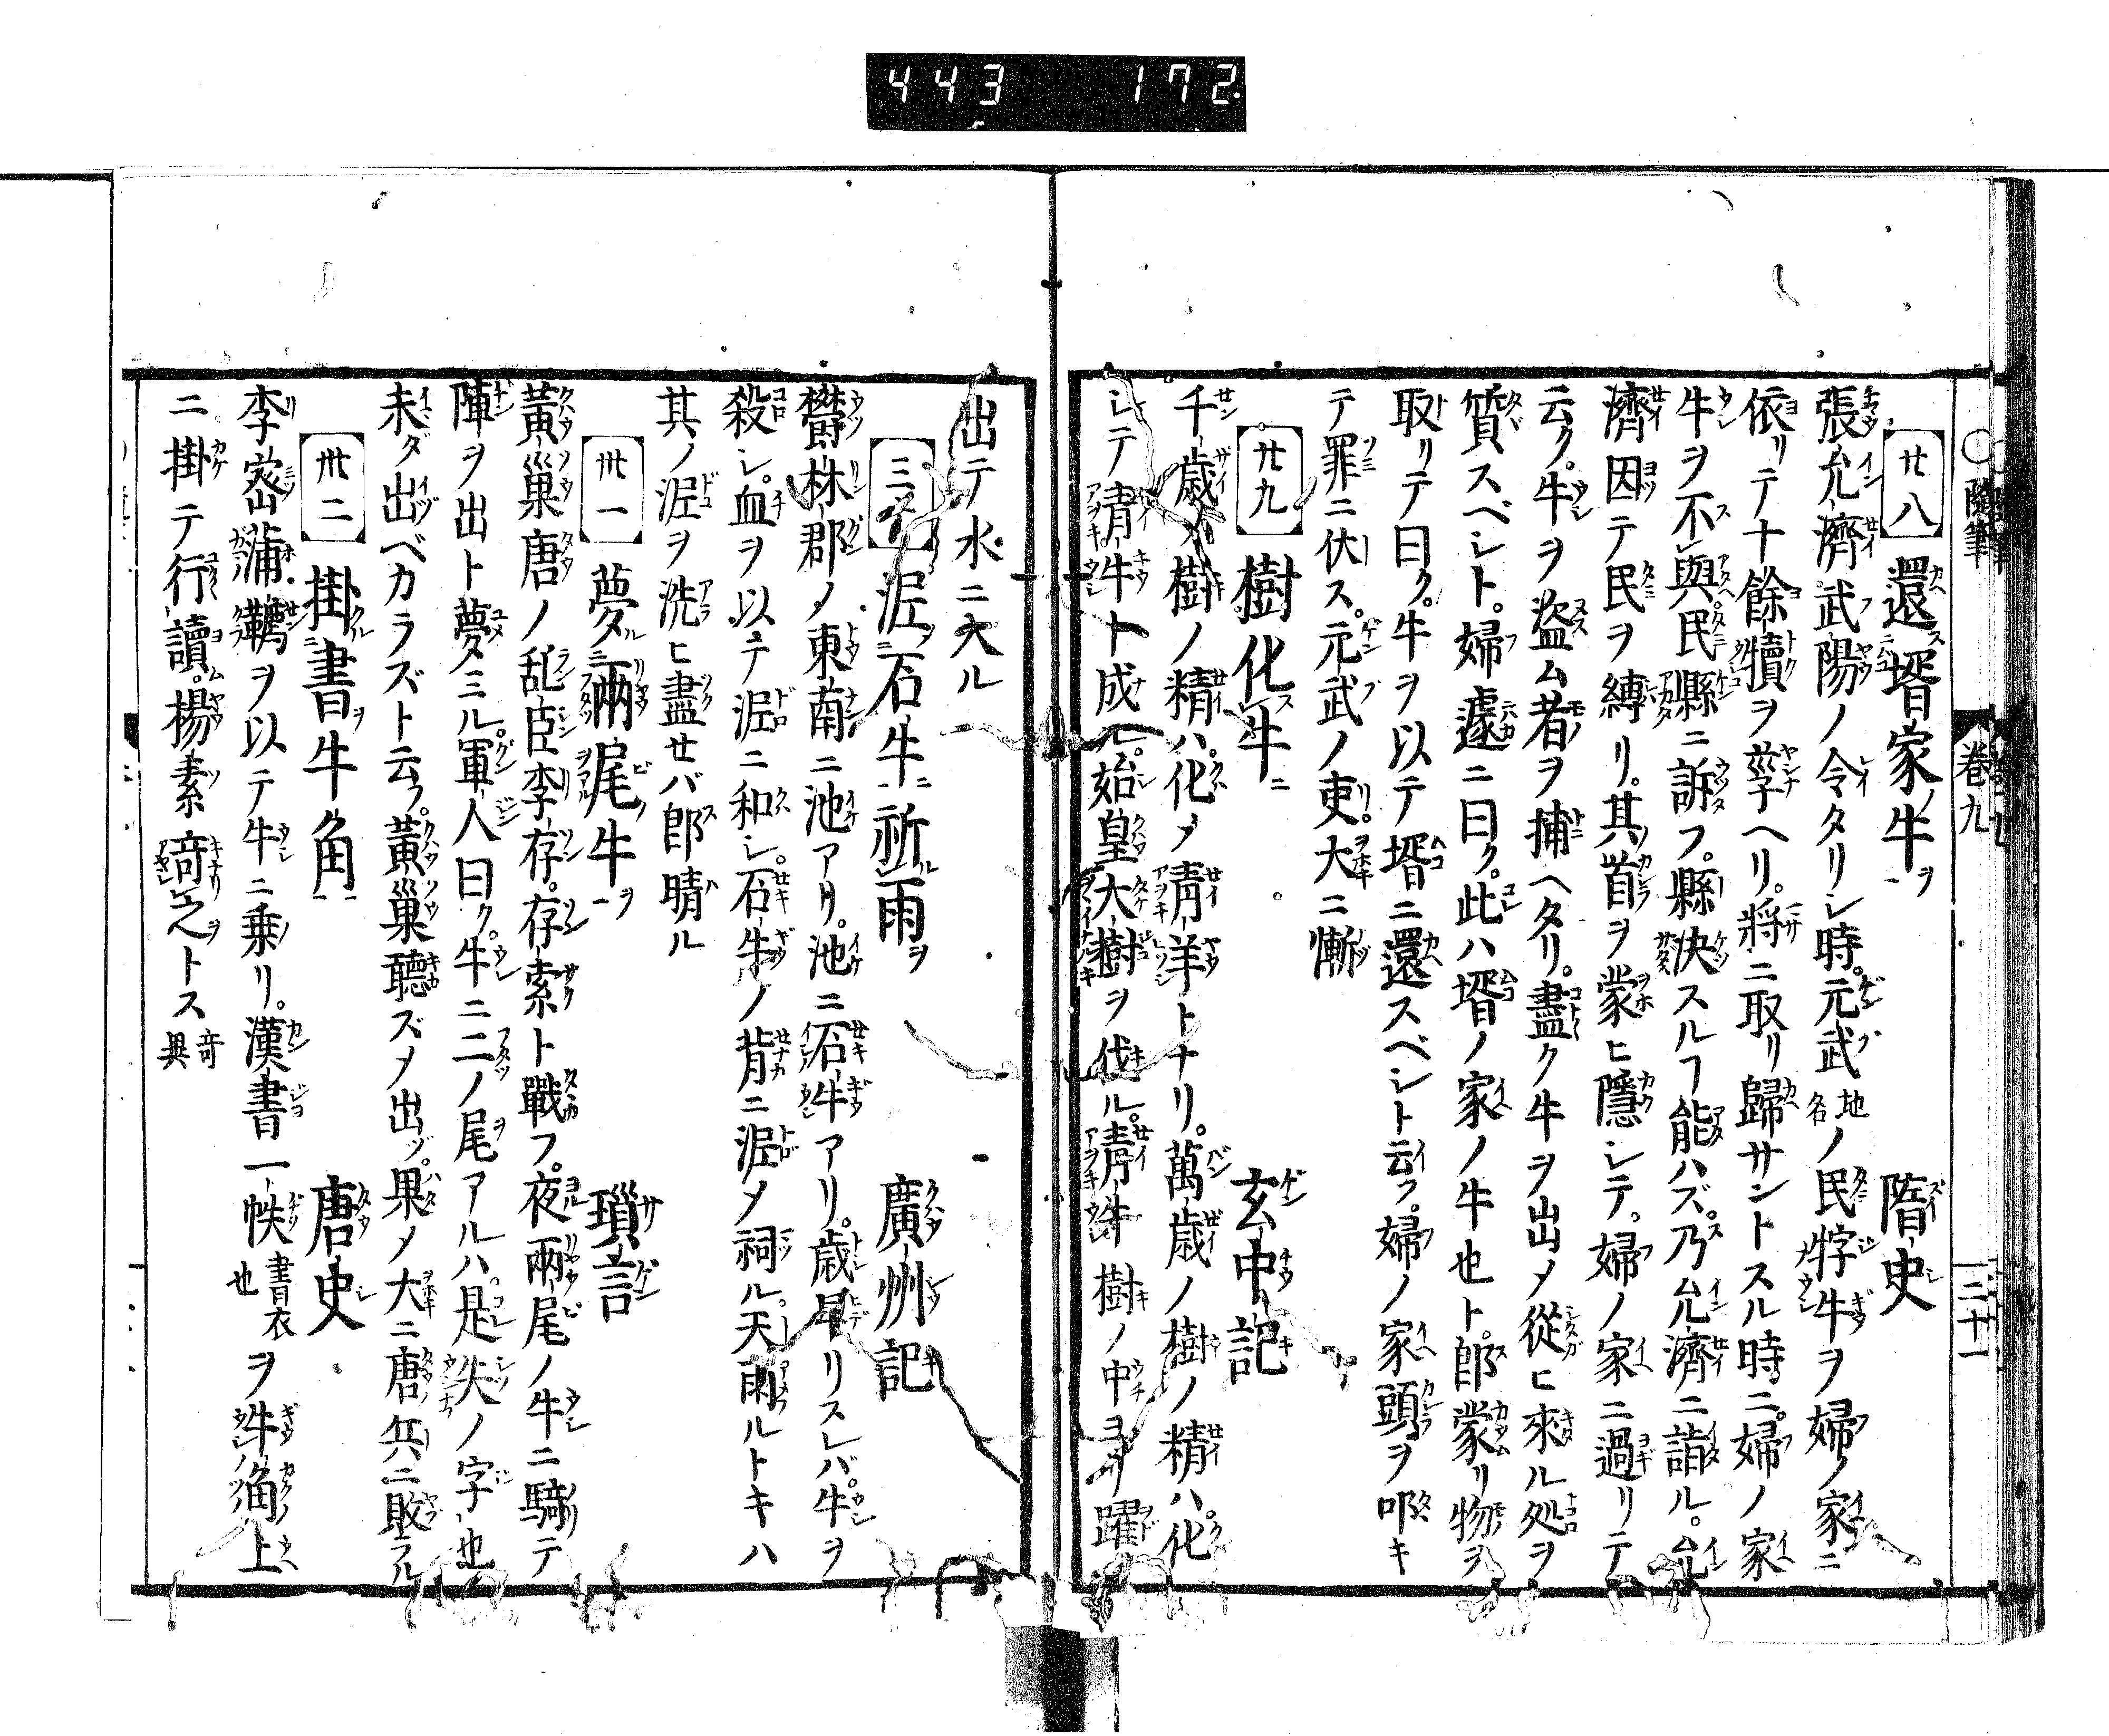 443 172
○隨筆 巻九 三十一
廿八 還ス壻家ノ牛ヲ 隋史
張允濟武陽ノ令タリシ時。元武地名ノ民牸牛ヲ婦ノ家ニ
依リテ十餘犢ヲ孳ヘリ。将ニ取リ歸サントスル時ニ。婦ノ家
牛ヲ不レ與。民縣ニ訴フ。縣決スルフ能ハズ。乃允濟ニ詣ル。允
濟因テ民ヲ縛リ。其ノ首ヲ蒙ヒ隠シテ。婦ノ家ニ過リテ
云ク。牛ヲ盗ム者ヲ捕ヘタリ。盡ク牛ヲ出メ從ヒ來ル処ヲ
質スベシト。婦遽ニ曰ク。此ハ壻ノ家ノ牛也ト。郎蒙リ物ヲ
取リテ曰ク。牛ヲ以テ壻ニ還スベシト云フ。婦ノ家頭ヲ叩キ
テ罪ニ伏ス。元武ノ吏。大ニ慚
廿九 樹化ス牛ニ 玄中記
千歳ノ樹ノ精ハ。化メ青羊トナリ。萬歳ノ樹ノ精ハ。化
シテ青牛ト成ル。始皇大樹ヲ伐ル。青牛樹ノ中ヨリ躍
出テ水ニ入ル
三十 泥ヲ石牛ニ祈ル雨ヲ 廣州記
欝林郡ノ東南ニ池アリ。池ニ石牛アリ。歳旱リスレバ。牛ヲ
殺シ。血ヲ以テ泥ニ和シ。石牛ノ背ニ泥メ祠ル。天雨ルトキハ
其ノ泥ヲ洗ヒ盡セバ郎晴ル
丗一 夢ル二兩尾ノ牛ヲ一 瑣言
黄巣唐ノ乱臣李存。存索ト戰フ。夜兩尾ノ牛ニ騎テ
陣ヲ出ト夢ミル。軍人曰ク。牛ニ二ノ尾アルハ是失ノ字也
未ダ出ベカラズト云フ。黄巣聽ズメ出ヅ。果メ大ニ唐兵ニ敗ラル
丗二 掛ル二書ヲ牛角ニ一 唐史
李宻蒲韉ヲ以テ牛ニ乗リ。漢書一帙書衣也ヲ牛角ノ上
ニ掛テ行讀。楊素竒之トス竒異